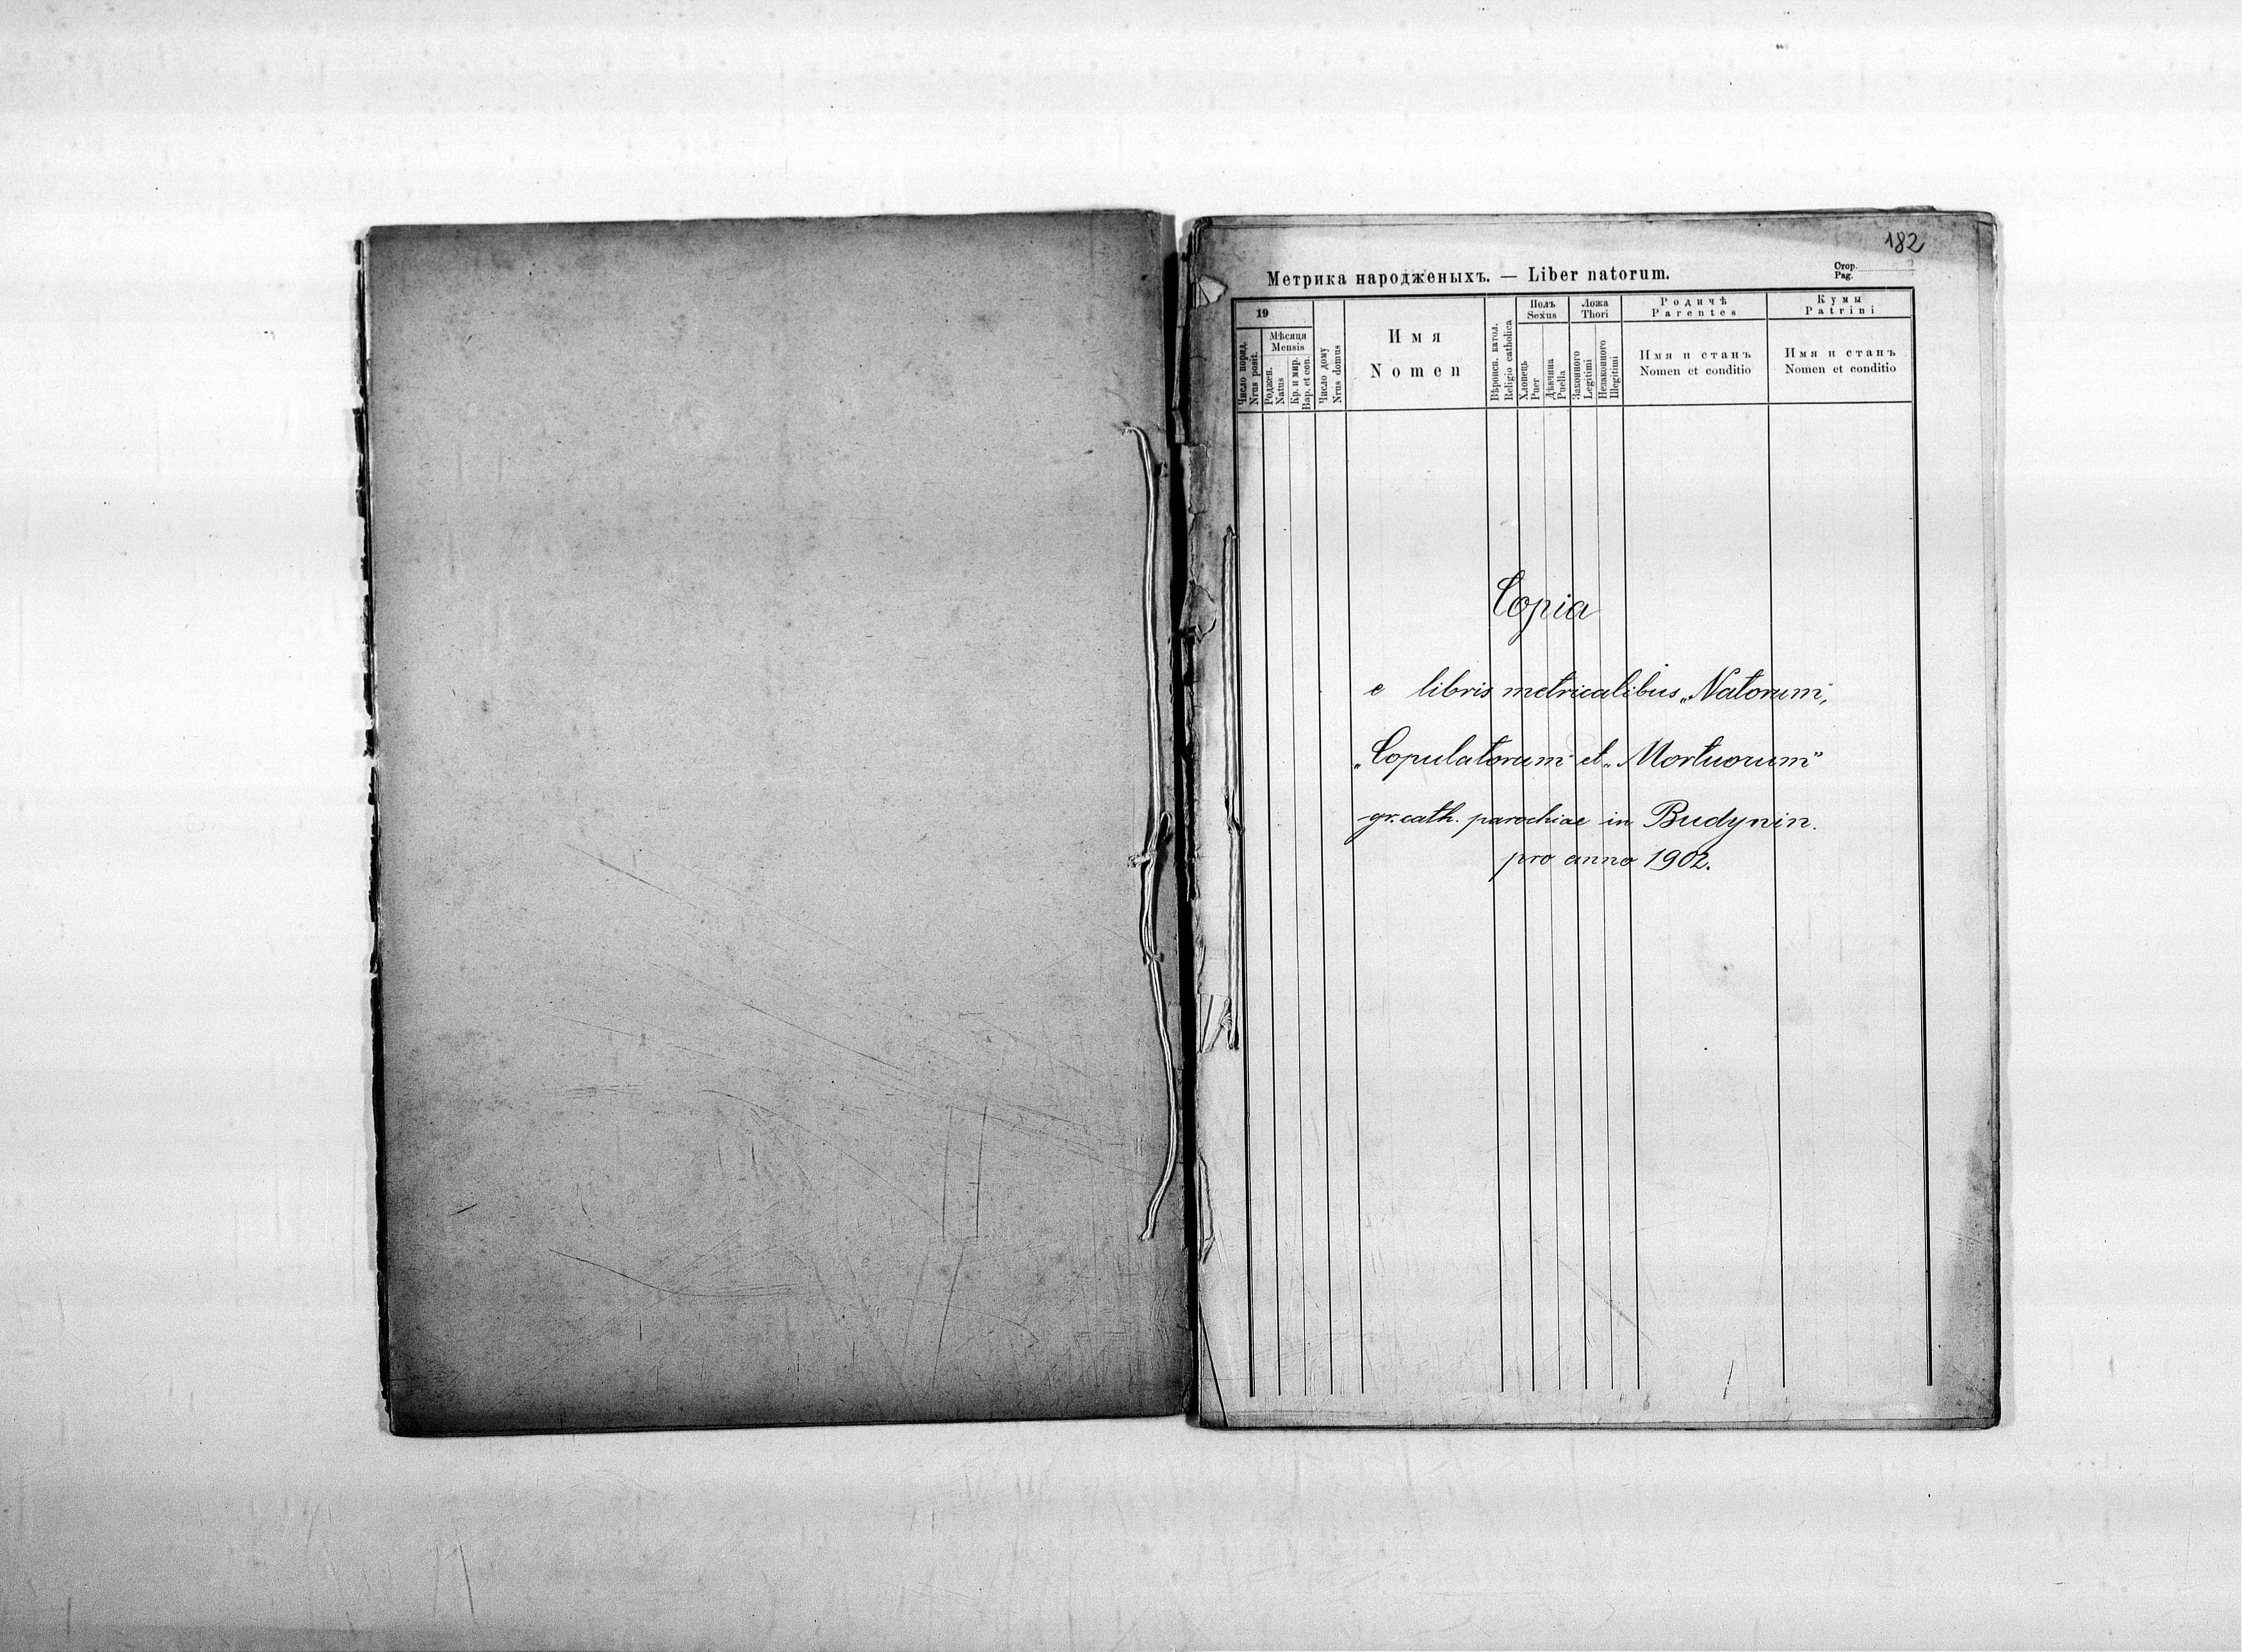 182
Метрика народженыхъ. — Liber natorum.
Стор.
Pag.
19
Число поряд.
Nrus posit.
Мѣсяця
Mensis
Роджен.
Natus
Кр. и мир.
Bap. et con.
Число дому
Nrus domus
Имя
Nomen
Вѣроисп. катол.
Religio catholica
Полъ
Sexus
Хлопець
Puer
Дѣвчина
Puella
Ложа
Thori
Законного
Legitimi
Незаконного
Illegitimi
Родичѣ
Parentes
Имя и станъ
Nomen et conditio
Кумы
Patrini
Имя и станъ
Nomen et conditio
Copia
e libris metricalibus „Natorum",
„Copulatorum" et „Mortuorum"
gr. cath. parochiae in Budynin.
pro anno 1902.